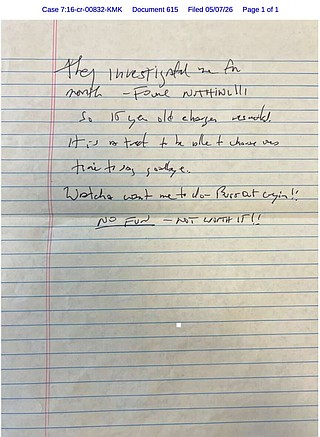 Case 7:16-cr-00832-KMK Document 615 Filed 05/07/26 Page 1 of 1
They investigated me for
month – Found NOTHING!!!
So 15 year old charges
It is to be able to choose
time to say goodbye.
Watcha want me to do – Burst out cryin!!
NO FUN – NOT WORTH IT!!